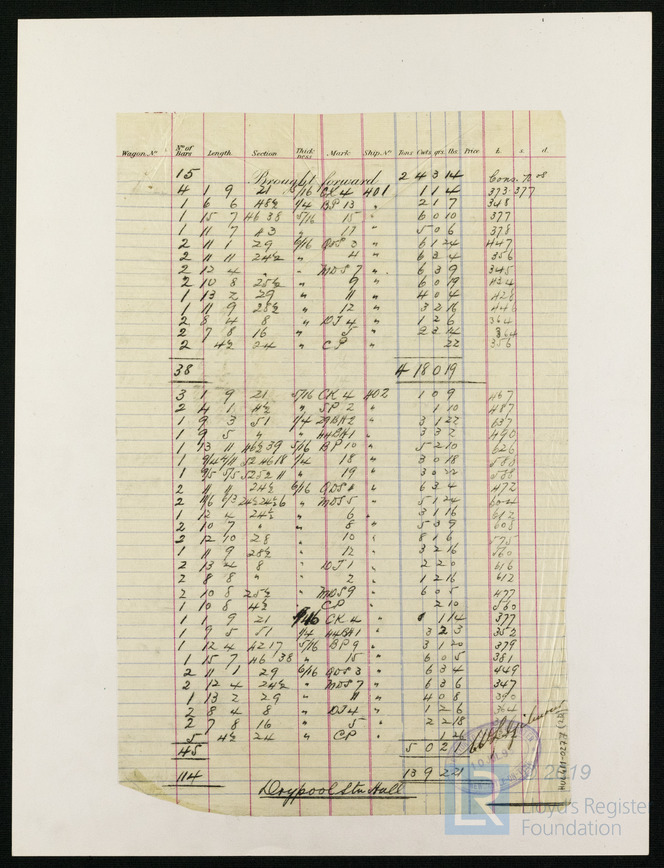 Wagon No No of Bars Length Section Thickness Mark Ship No Tons Cwts qrs. lbs Price £. s. d.
15 Brought forward 2 4 3 14
4 1 9 21 5/16 CK 4 401 1 1 4 373·377
1 6 6 48½ 1/4 BP 13 " 2 1 7 348
1 15 7 46 38 5/16 15 " 6 0 10 377
1 11 7 43 " 17 " 5 0 6 378
2 11 1 29 6/16 QDS 3 " 6 1 24 447
2 11 11 24½ " 4 " 6 3 4 356
2 12 4 " " MDS 7 " 6 3 9 345
2 10 8 25½ " 9 " 6 0 19 424
1 13 2 29 " 11 " 4 0 4 428
1 11 9 28½ " 12 " 3 2 16 446
2 8 4 8 " DJ 4 " 1 2 6 364
2 7 8 16 " 5 " 2 3 14 364
2 4½ 24 " CP " 22 356
38 4 18 0 19
3 1 9 21 5/16 CK 4 402 1 0 9 467
2 4 1 4½ " SP 2 " 1 10 487
1 9 3 51 1/4 " 3 1 22 637
1 9 5 " " " 3 3 2 490
1 13 11 46½ 39 5/16 BP 10 " 5 2 10 626
1 1/4 18 " 3 0 18 588
1 " 19 " 3 0 22 588
2 11 11 24½ 6/16 QDS 4 " 6 3 4 472
2 " MDS 5 " 5 1 24 604
1 12 4 24½ " 6 " 3 1 16 612
2 10 7 " " 8 " 5 3 9 608
2 12 10 28 " 10 " 8 1 6 595
1 11 9 28½ " 12 " 3 2 16 560
2 13 4 8 " DJ 1 " 2 2 0 616
2 8 8 " " 2 " 1 2 16 612
2 10 8 25½ " MDS 9 " 6 0 5 477
1 10 8 4½ " CP " 2 10 560
1 1 9 21 5/16 CK 4 " 1 14 377
1 9 5 51 1/4 H4BH1 " 3 2 3 352
1 12 4 42 17 5/16 BP 9 " 3 1 20 379
1 15 7 46 38 " 15 " 6 0 5 381
2 11 1 29 6/16 QDS 3 " 6 3 4 449
2 12 4 24½ " MDS 7 " 6 3 6 347
1 13 2 29 " 11 " 4 0 8 390
2 8 4 8 " DJ4 " 1 2 6 364
2 7 8 16 " 5 " 2 2 18
5 4½ 24 " CP " 1 26
45 5 0 2 1
114 13 9 2 21
Drypool Stn Hull
HUL411-0277 (2R)
© 2019
LR
Lloyd's Register
Foundation